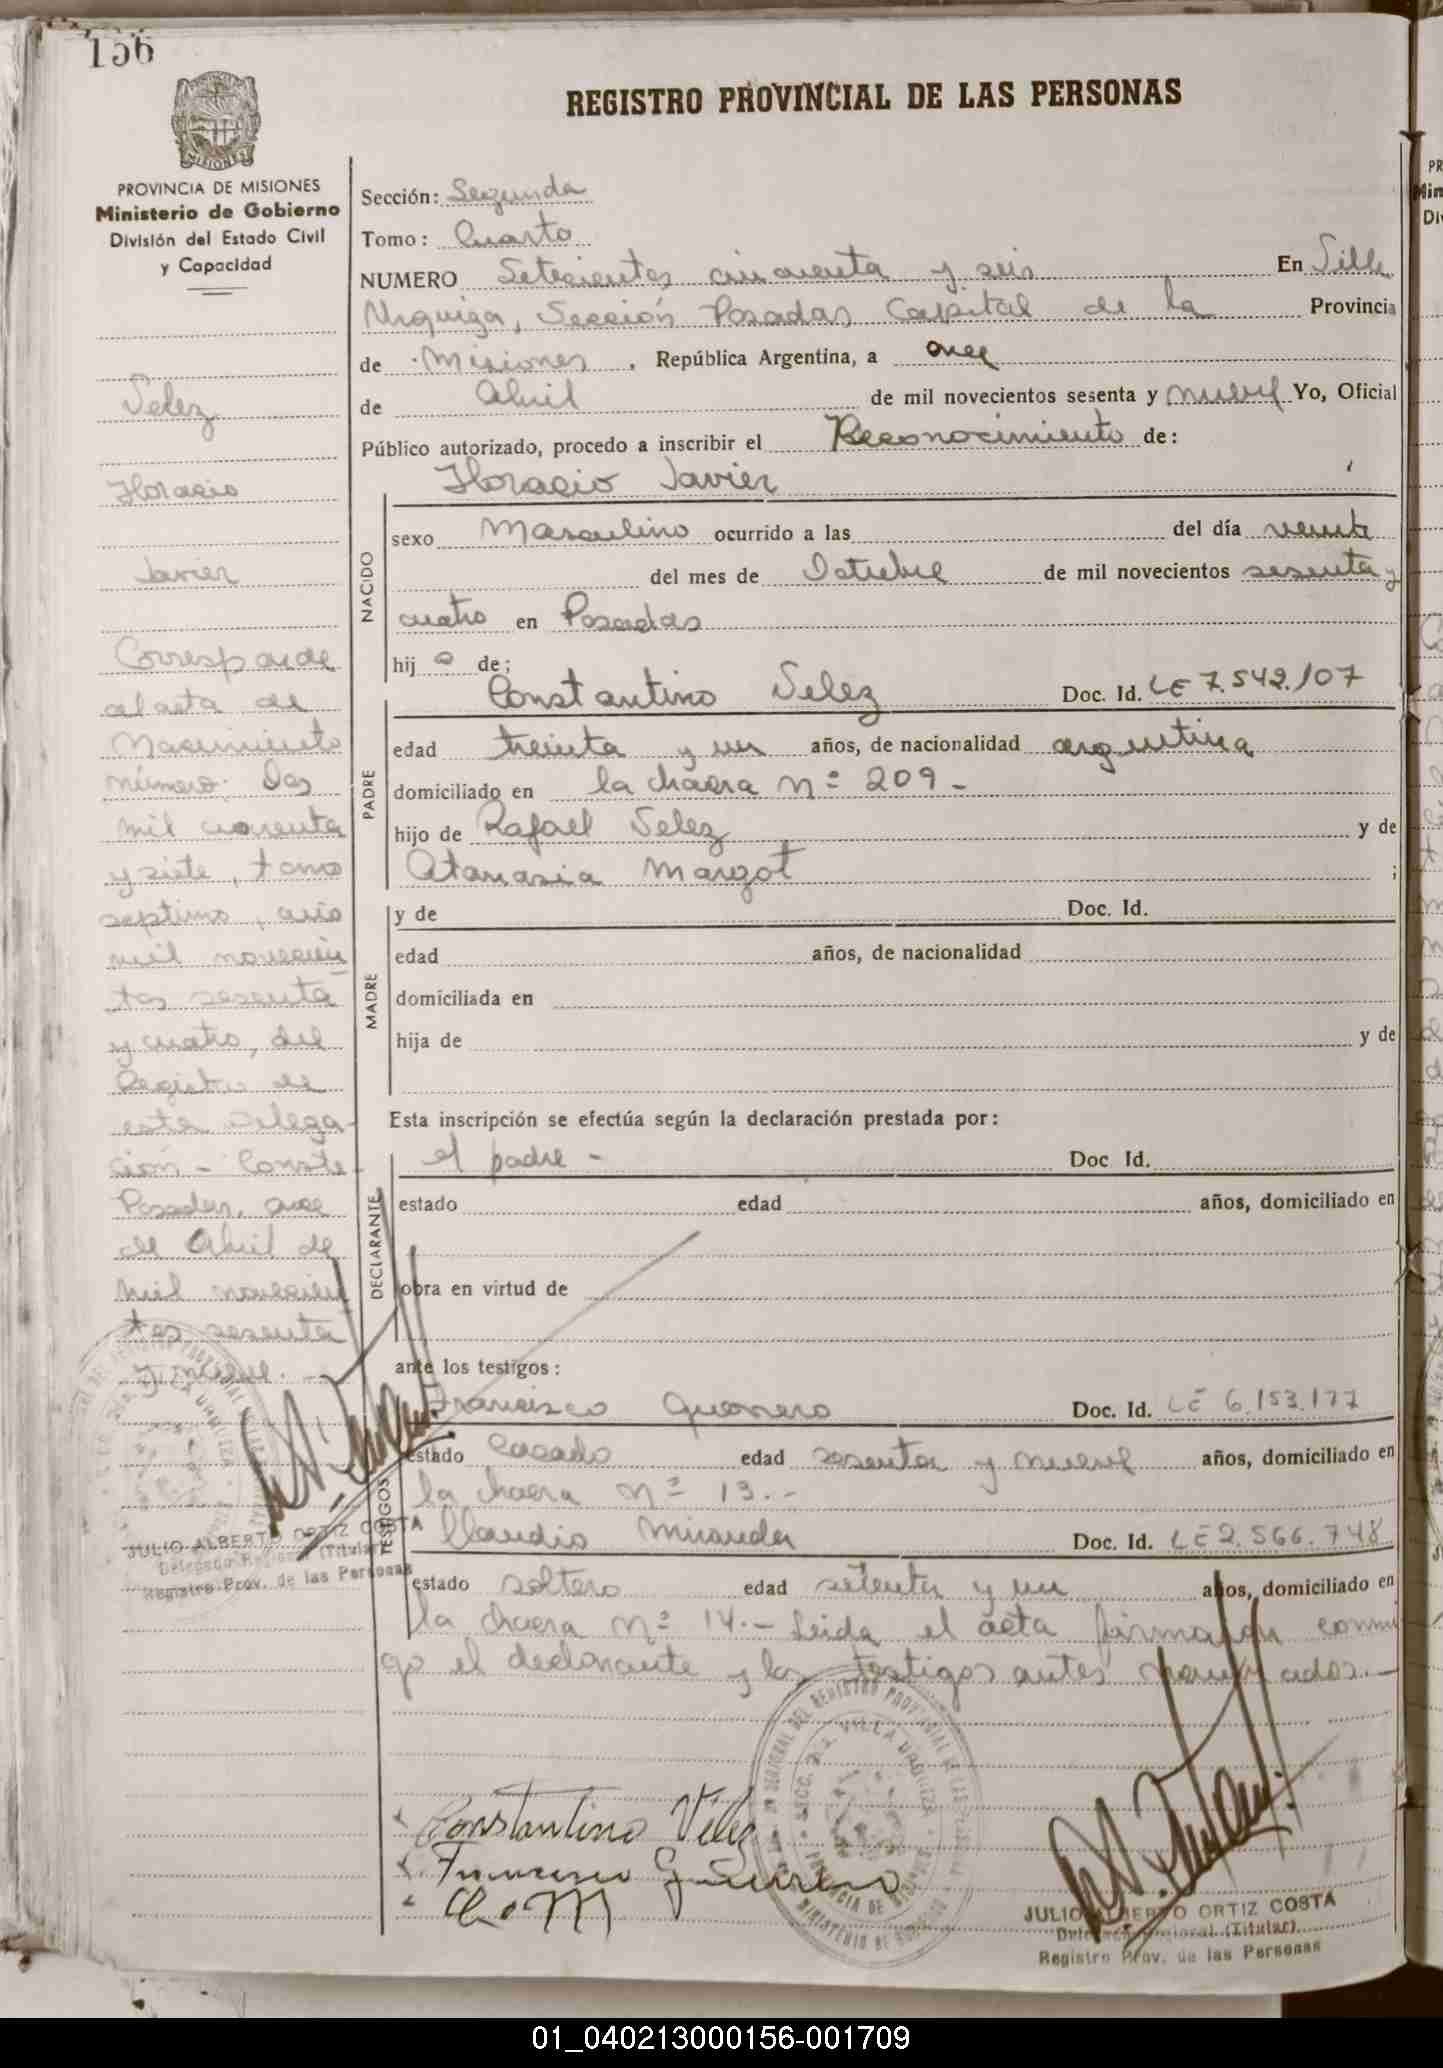 156
REGISTRO PROVINCIAL DE LAS PERSONAS
MISIONES
PROVINCIA DE MISIONES
Ministerio de Gobierno
División del Estado Civil
y Capacidad
Velez
Horacio
Javier
Corresponde
al acta de
Nacimiento
número Dos
mil cuarenta
y siete, tomo
septimo, año
mil novecien
tos sesenta
y cuatro, del
Registro de
esta Delega-
ción - Conste-
Posadas, once
de Abril de
mil novecien
tos sesenta
y nueve. -
JULIO ALBERTO ORTIZ COSTA
Delegado Regional (Titular)
Registro Prov. de las Personas
Sección: Segunda
Tomo: Cuarto
NUMERO Setecientos cincuenta y seis En Villa
Urquiza, Sección Posadas Capital de la Provincia
de Misiones, República Argentina, a once
de Abril de mil novecientos sesenta y nueve Yo, Oficial
Público autorizado, procedo a inscribir el Reconocimiento de:
Horacio Javier
NACIDO
sexo Masculino ocurrido a las del día veinte
del mes de Octubre de mil novecientos sesenta y
cuatro en Posadas
hij o de:
PADRE
Constantino Velez Doc. Id. LE 7.542.107
edad treinta y un años, de nacionalidad argentina
domiciliado en la chacra nº 209 -
hijo de Rafael Velez y de
Atanasia Margot ;
MADRE
y de Doc. Id.
edad años, de nacionalidad
domiciliada en
hija de y de
Esta inscripción se efectúa según la declaración prestada por:
DECLARANTE
el padre - Doc Id.
estado edad años, domiciliado en
obra en virtud de
ante los testigos:
TESTIGOS
Francisco Guerrero Doc. Id. LE 6.153.177
estado Casado edad sesenta y nueve años, domiciliado en
la chacra nº 13.-
Claudio Miranda Doc. Id. LE 2.566.748
estado soltero edad setenta y un años, domiciliado en
la chacra nº 14.- Leida el acta firmaron conmi
go el declarante y los testigos antes nombrados.-
Constantino Vélez
Francisco Guerrero
C. M
JULIO ALBERTO ORTIZ COSTA
Delegado Regional (Titular)
Registro Prov. de las Personas
01_040213000156-001709